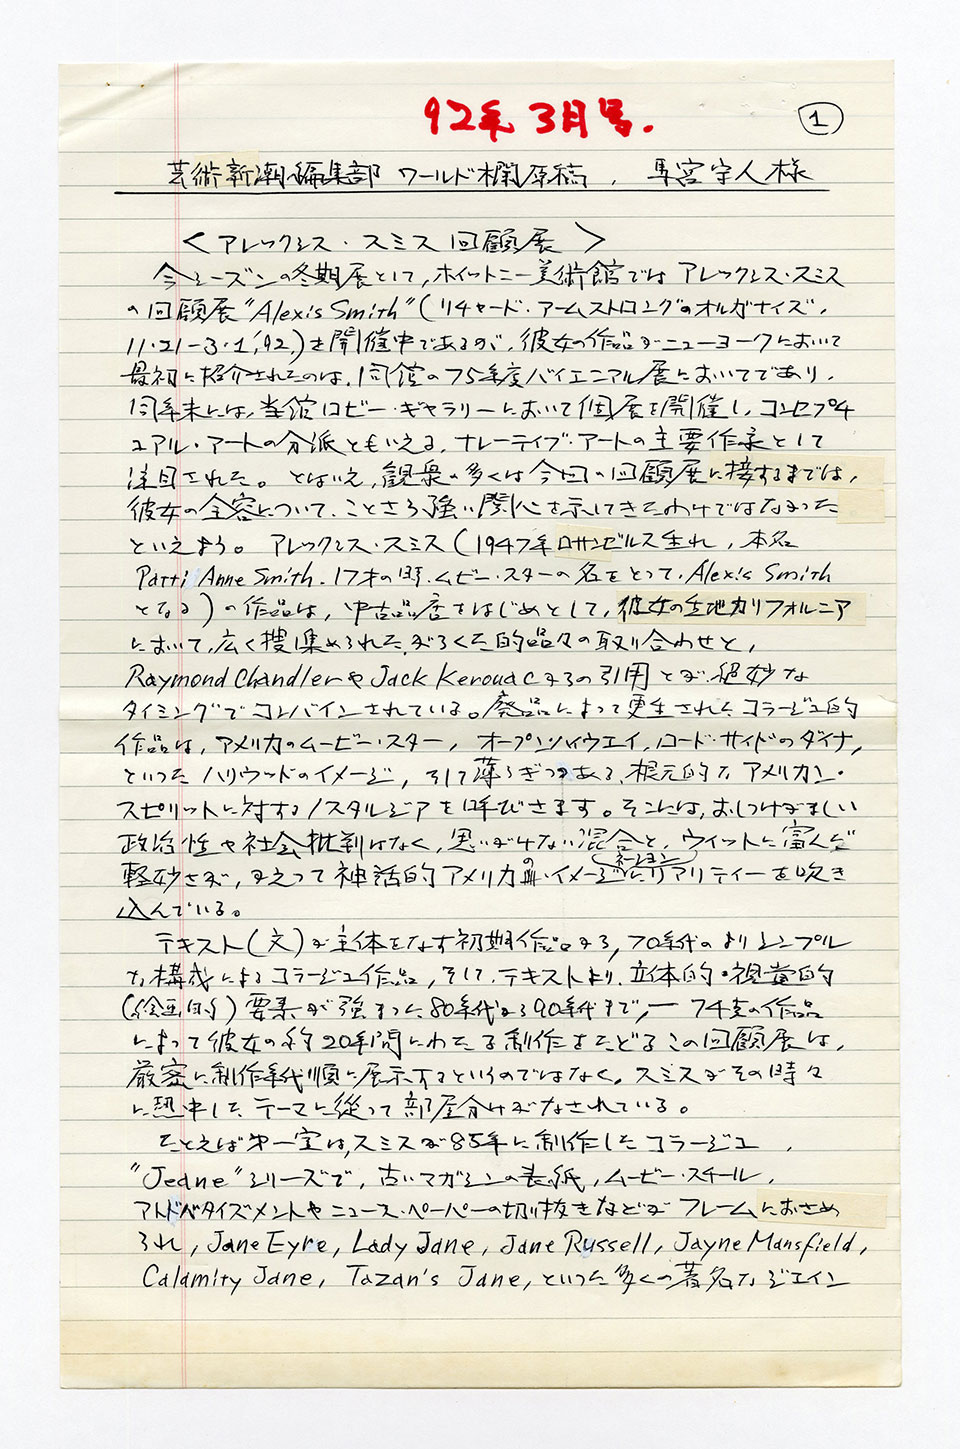 92年3月号.
1
芸術新潮編集部 ワールド欄原稿, 馬宮守人様
〈アレックシス・スミス回顧展〉
今シーズンの冬期展として,ホイットニー美術館ではアレックシス・スミス
の回顧展"Alexis Smith"(リチャード・アームストロングのオルガナイズ,
11・21-3・1,'92,)を開催中であるが,彼女の作品がニューヨークにおいて
最初に紹介されたのは,同館の75年度バイエニアル展においてであり,
同年末には,当館ロビー・ギャラリーにおいて個展を開催し,コンセプチ
ュアル・アートの分派ともいえる,ナレーティブ・アートの主要作家として
注目された。とはいえ,観衆の多くは今回の回顧展に接するまでは,
彼女の全容について,ことさら強い関心を示してきたわけではなかった
といえよう。アレックシス・スミス(1947年ロサンゼルス生れ,本名
Patti Anne Smith.17才の時,ムビー・スターの名をとって,Alexis Smith
となる)の作品は,中古品店をはじめとして,彼女の生地カリフォルニア
において,広く捜し集められた,がらくた的品々の取り合わせと,
Raymond ChandlerやJack Kerouacからの引用とが,絶妙な
タイミングでコンバインされている。廃品によって更生されたコラージュ的
作品は,アメリカのムービー・スター,オープンハイウエイ,ロード・サイドのダイナ,
といったハリウッドのイメージ,引いて薄らぎつつある,根元的なアメリカン・
スピリットに対するノスタルジアを呼びさます。そこには,おしつけがましい
政治性や社会批判はなく,思いがけない混合と,ウィットに富んだ
軽妙さが,かえって神話的アメリカのイメージにリアリティーを吹き
込んでいる。
テキスト(文)が主体をなす初期作品から,70年代のよりシンプル
な構成によるコラージュ作品,そして,テキストより,立体的・視覚的
(絵画的)要素が強まった80年代から90年代まで,ー74点の作品
によって彼女の約20年間にわたる制作をたどるこの回顧展は,
厳密に制作年代順に展示するというのではなく,スミスがその時々
に熱中したテーマに従って部屋分けがなされている。
たとえば第一室は,スミスが85年に制作したコラージュ,
"Jeane"シリーズで,古いマガジンの表紙,ムービー・スチール,
アドバタイズメントやニュース・ペーパーの切り抜きなどがフレームにおさめ
られ,Jane Eyre, Lady Jane, Jane Russell, Jayne Mansfield,
Calamity Jane, Tazan's Jane,といった多くの著名なジェイン